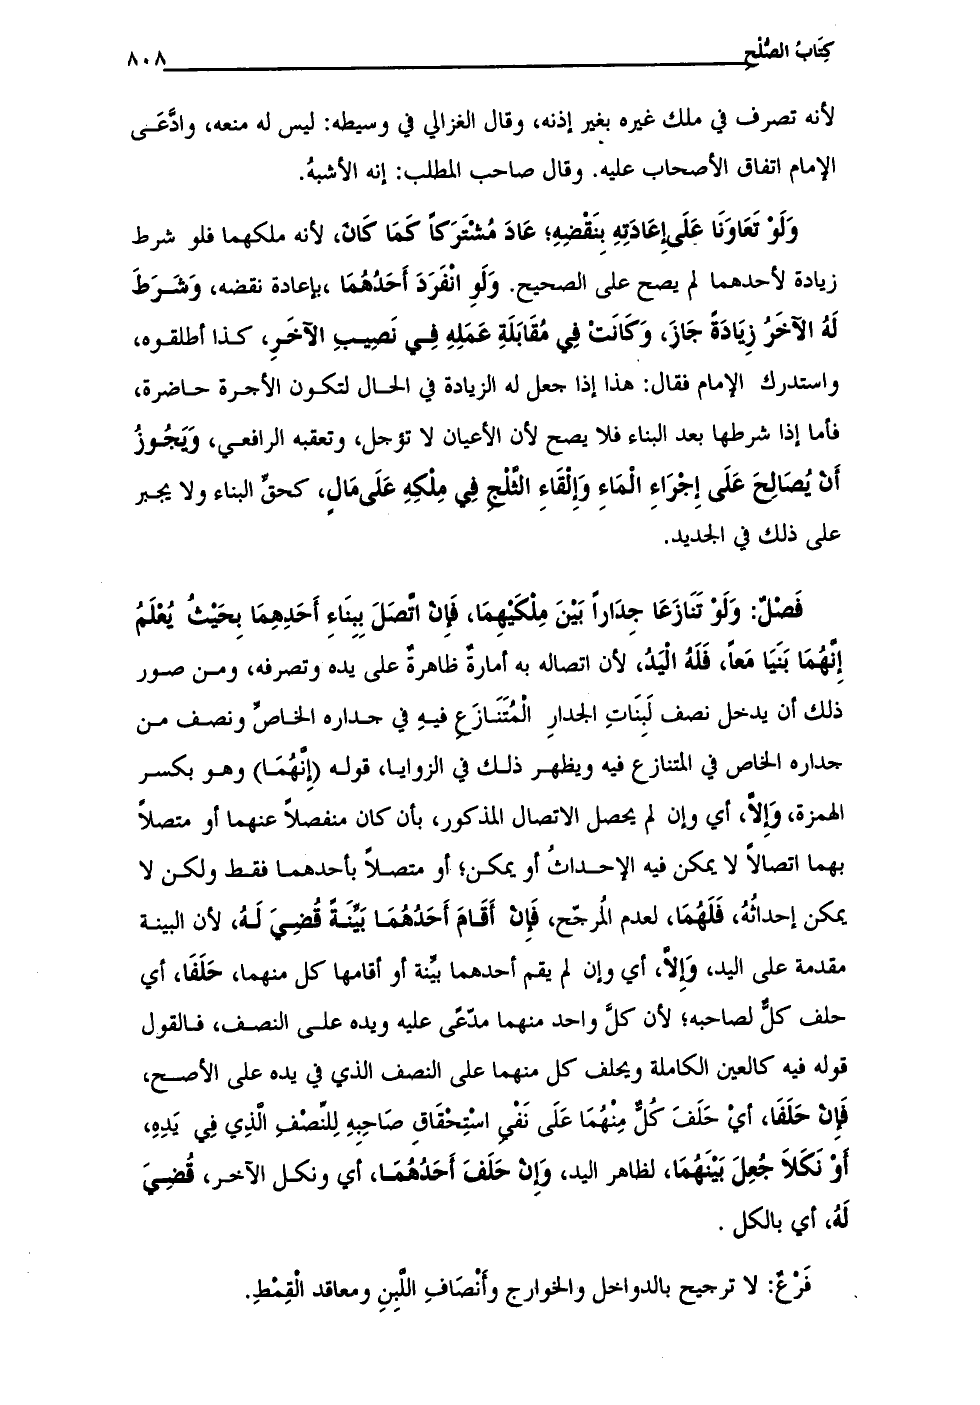 كِتَابُ الصُّلْحِ ٨٠٨
لأنه تصرف في ملك غيره بغير إذنه، وقال الغزالي في وسيطه: ليس له منعه، وادَّعَـى
الإمام اتفاق الأصحاب عليه. وقال صاحب المطلب: إنه الأشبهُ.
وَلَوْ تَعَاوَنَا عَلَى إِعَادَتِهِ بِنَقْضِهِ؛ عَادَ مُشْتَرَكاً كَمَا كَانَ، لأنه ملكهما فلو شرط
زيادة لأحدهما لم يصح على الصحيح. وَلَوِ انْفَرَدَ أَحَدُهُمَا ،بإعادة نقضه، وَشَـرَطَ
لَهُ الآخَرُ زِيَادَةً جَازَ، وَكَانَتْ فِي مُقَابَلَةِ عَمَلِهِ فِـي نَصِيـبِ الآخَـرِ، كـذا أطلقـوه،
واستدرك الإمام فقال: هذا إذا جعل له الزيادة في الحال لتكون الأجرة حـاضرة،
فأما إذا شرطها بعد البناء فلا يصح لأن الأعيان لا تؤجل، وتعقبه الرافعي، وَيَجُـوزُ
أَنْ يُصَالِحَ عَلَى إِجْرَاءِ الْمَاءِ وَإِلْقَاءِ الثَّلْجِ فِي مِلْكِهِ عَلَى مَالٍ، كحقِّ البناء ولا يجبر
على ذلك في الجديد.
فَصْلٌ: وَلَوْ تَنَازَعَا جِدَاراً بَيْنَ مِلْكَيْهِمَا، فَإِنْ اتَّصَلَ بِبِنَاءِ أَحَدِهِمَا بِحَيْثُ يُعْلَمُ
إِنَّهُمَا بَنَيَا مَعاً، فَلَهُ الْيَدُ، لأن اتصاله به أمارةٌ ظاهرةٌ على يده وتصرفه، ومـن صـور
ذلك أن يدخل نصف لَبِنَاتِ الجدارِ الْمُتَنَـازَعِ فيـهِ في جـداره الخـاصِّ ونصـف مـن
جداره الخاص في المتنازع فيه ويظهر ذلـك في الزوايـا، قولـه (إِنَّهُمَـا) وهـو بكسـر
الهمزة، وَإِلاَّ، أي وإن لم يحصل الاتصال المذكور، بأن كان منفصلاً عنهما أو متصلاً
بهما اتصالاً لا يمكن فيه الإحـداثُ أو يمكـن؛ أو متصـلاً بأحدهمـا فقـط ولكـن لا
يمكن إحداثُهُ، فَلَهُمَا، لعدم المُرجّح، فَإِنْ أَقَامَ أَحَدُهُمَـا بَيِّنَـةً قُضِـيَ لَـهُ، لأن البينـة
مقدمة على اليد، وَإِلاَّ، أي وإن لم يقم أحدهما بيِّنة أو أقامها كل منهما، حَلَفَا، أي
حلف كلٌّ لصاحبه؛ لأن كلَّ واحد منهما مدّعًى عليه ويده علـى النصـف، فـالقول
قوله فيه كالعين الكاملة ويحلف كل منهما على النصف الذي في يده على الأصـح،
فَإِنْ حَلَفَا، أيْ حَلَفَ كُلٌّ مِنْهُمَا عَلَى نَفْيِ اسْتِحْقَاقِ صَاحِبِهِ لِلنِّصْفِ الَّذِي فِي يَدِهِ،
أَوْ نَكَلاَ جُعِلَ بَيْنَهُمَا، لظاهر اليد، وَإِنْ حَلَفَ أَحَدُهُمَـا، أي ونكـل الآخـر، قُضِـيَ
لَهُ، أي بالكل .
فَرْعٌ: لا ترجيح بالدواخل والخوارج وأَنْصَافِ اللَّبِنِ ومعاقد الْقِمْطِ.